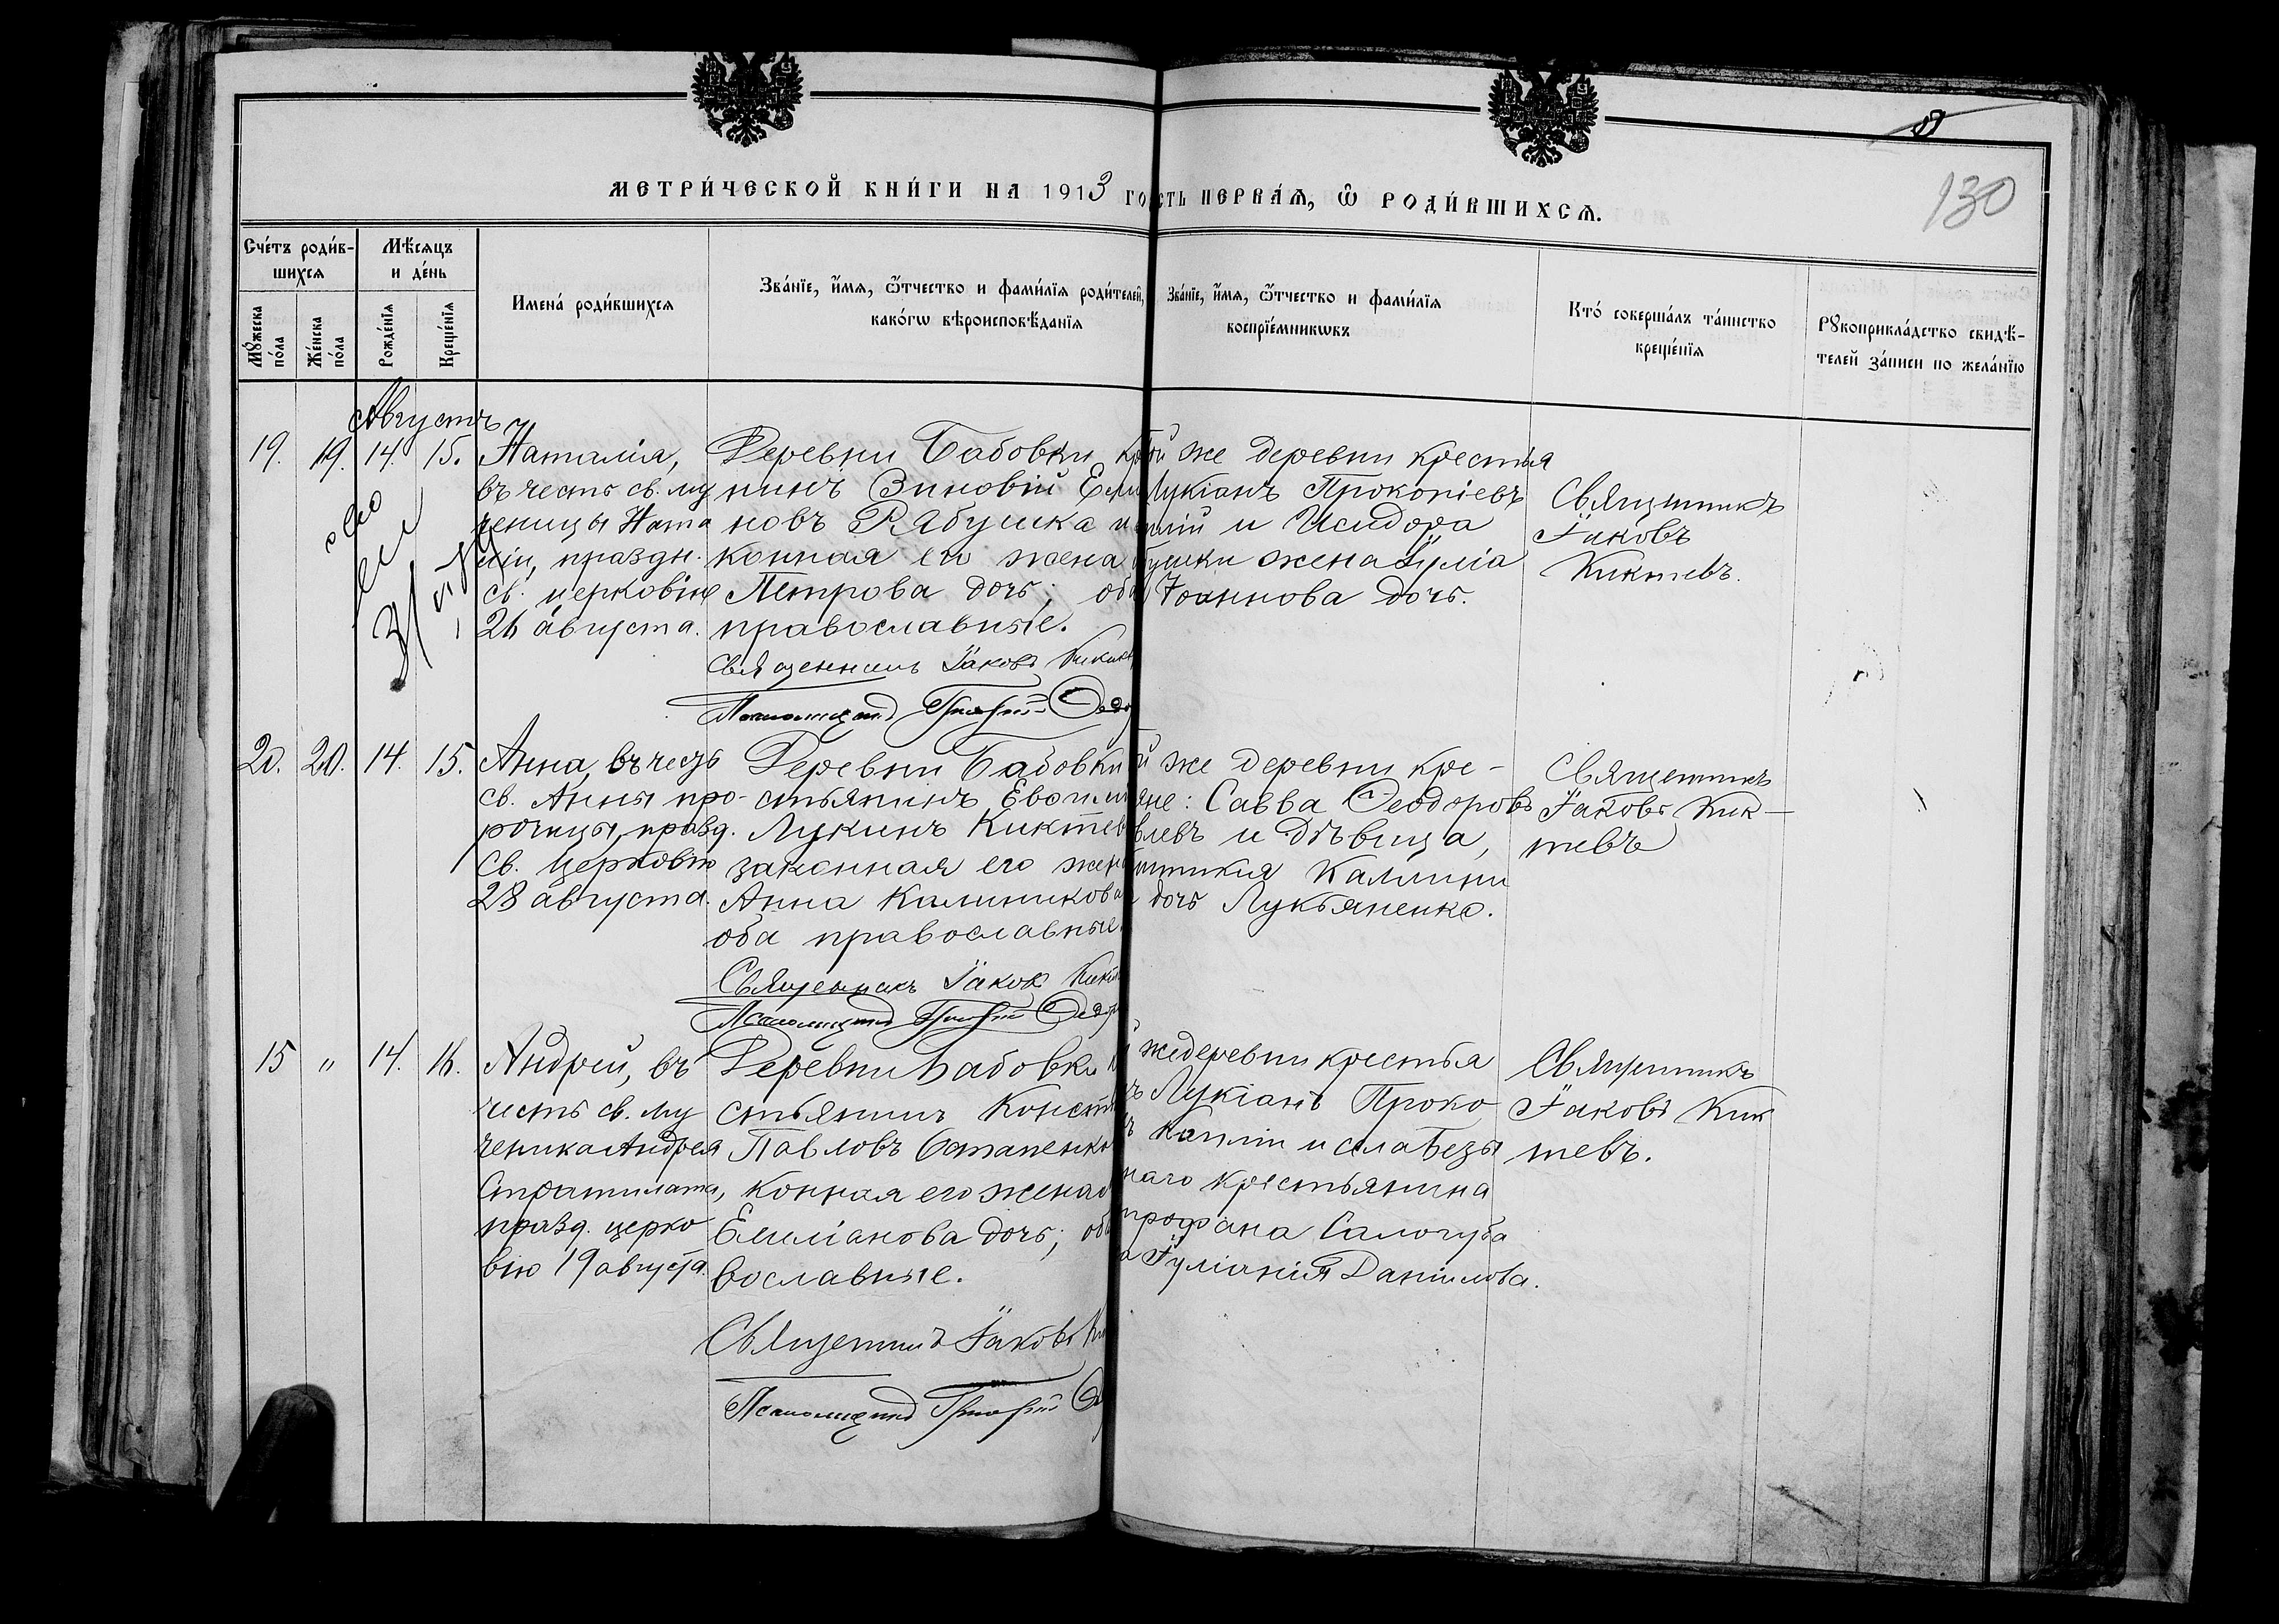 МЕТРИ́ЧЕСКОЙ КНИ́ГИ НА 1913 ГО СТЬ ПЕРВА́Ѧ, Ѡ РОДИ́ВШИХСѦ.
130
Сче́тъ роди́в-
шихсѧ
Мѣ́сѧцъ
и де́нь
Мꙋ́жеска
по́ла
Же́нска
по́ла
Рожде́нїѧ
Креще́нїѧ
Имена́ роди́вшихсѧ
Зва́нїе, и́мѧ, ѻ́тчество и фами́лїѧ роди́телей,
како́гѡ вѣроисповѣ́данїѧ
Зва́нїе, и́мѧ, ѻ́тчество и фами́лїѧ
воспрїе́мникѡвъ
Кто́ соверша́лъ та́инство
креще́нїѧ
Рꙋкоприкла́дство свидѣ́-
телей за́писи по жела́нїю
Августъ
19. 19. 14. 15.
Наталія,
въ честь св. му
ченицы Ната
ліи, праздн.
св. церковію
26 августа.
Деревни Бабовки, к
нинъ Зиновій Ем
новъ Рябушка и
конная его жена
Петрова дочь; оба
православные.
Священникъ Іаковъ Кикт
Псаломщикъ Григорій Федо
той же деревни крестья
Лукіанъ Прокопіевъ
и Исидора
бушки жена Іулія
Іоаннова дочь.
Священникъ
Іаковъ
Киктевъ.
20. 20. 14. 15.
Анна, въ честь
св. Анны про-
рочицы, празд.
св. церковію
28 августа.
Деревни Бабовки
стьянинъ Евфим
Лукинъ Киктев
законная его жена
Анна Калиникова
оба православные
Священникъ Іаковъ Кикт
Псаломщикъ Григорій Федор
й же деревни кре-
яне: Савва Феодоровъ
влевъ и дѣвица,
Каллини
дочь Лукьяненко.
Священникъ
Іаковъ Кик-
тевъ
15 " 14. 16.
Андрей, въ
честь св. му
ченика Андрея
Стратилата,
празд. церко
вію 19 августа.
Деревни Бабовки к
стьянинъ Конста
Павловъ Остапенко
конная его жена
Емиліанова дочь; оба
вославные.
Священникъ Іаковъ Ки
Псаломщикъ Григорій Ф
же деревни крестья
ъ Лукіанъ Проко
и слабезы
наго крестьянина
трофана Салогуба
а Іуліанія Даніилова.
Священникъ
Іаковъ Кик
тевъ.